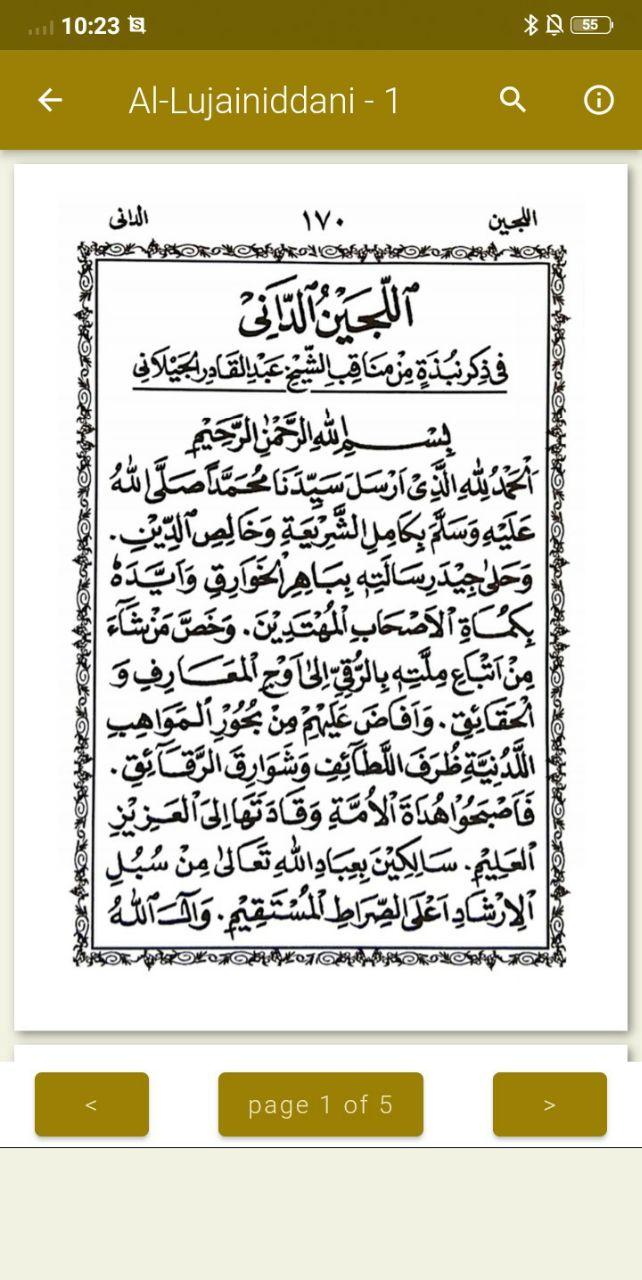 10:23
55
Al-Lujainiddani - 1
اللجين ١٧٠ الدانى
اَللُّجَيْنُ الدَّانِىْ
فِى ذِكْرِ نُبْذَةٍ مِنْ مَنَاقِبِ الشَّيْخِ عَبْدِ الْقَادِرِ الْجَيْلَانِي
بِسْـــمِ اللهِ الرَّحْمٰنِ الرَّحِيْمِ
اَلْحَمْدُ لِلّٰهِ الَّذِىْ اَرْسَلَ سَيِّدَنَا مُحَمَّدًا صَلَّى اللهُ
عَلَيْهِ وَسَلَّمَ بِكَامِلِ الشَّرِيْعَةِ وَخَالِصِ الدِّيْنِ.
وَحَلَى جِيْدَ رِسَالَتِهٖ بِبَاهِرِ الْخَوَارِقِ وَاَيَّدَهُ
بِكُمَاةِ الْاَصْحَابِ الْمُهْتَدِيْنَ. وَخَصَّ مَنْ شَآءَ
مِنْ اَتْبَاعِ مِلَّتِهٖ بِالرُّقِيِّ اِلٰى اَوْجِ الْمَعَارِفِ وَ
الْحَقَائِقِ. وَاَفَاضَ عَلَيْهِمْ مِنْ بُحُوْرِ الْمَوَاهِبِ
اللَّدُنِيَّةِ ظُرَفَ اللَّطَآئِفِ وَشَوَارِقَ الرَّقَآئِقِ.
فَاَصْبَحُوْا هُدَاةَ الْاُمَّةِ وَقَادَتَهَا اِلَى الْعَزِيْزِ
الْعَلِيْمِ. سَالِكِيْنَ بِعِبَادِ اللهِ تَعَالٰى مِنْ سُبُلِ
الْاِرْشَادِ اَعْلَى الصِّرَاطِ الْمُسْتَقِيْمِ. وَاَلَ اللهُ
<
page 1 of 5
>